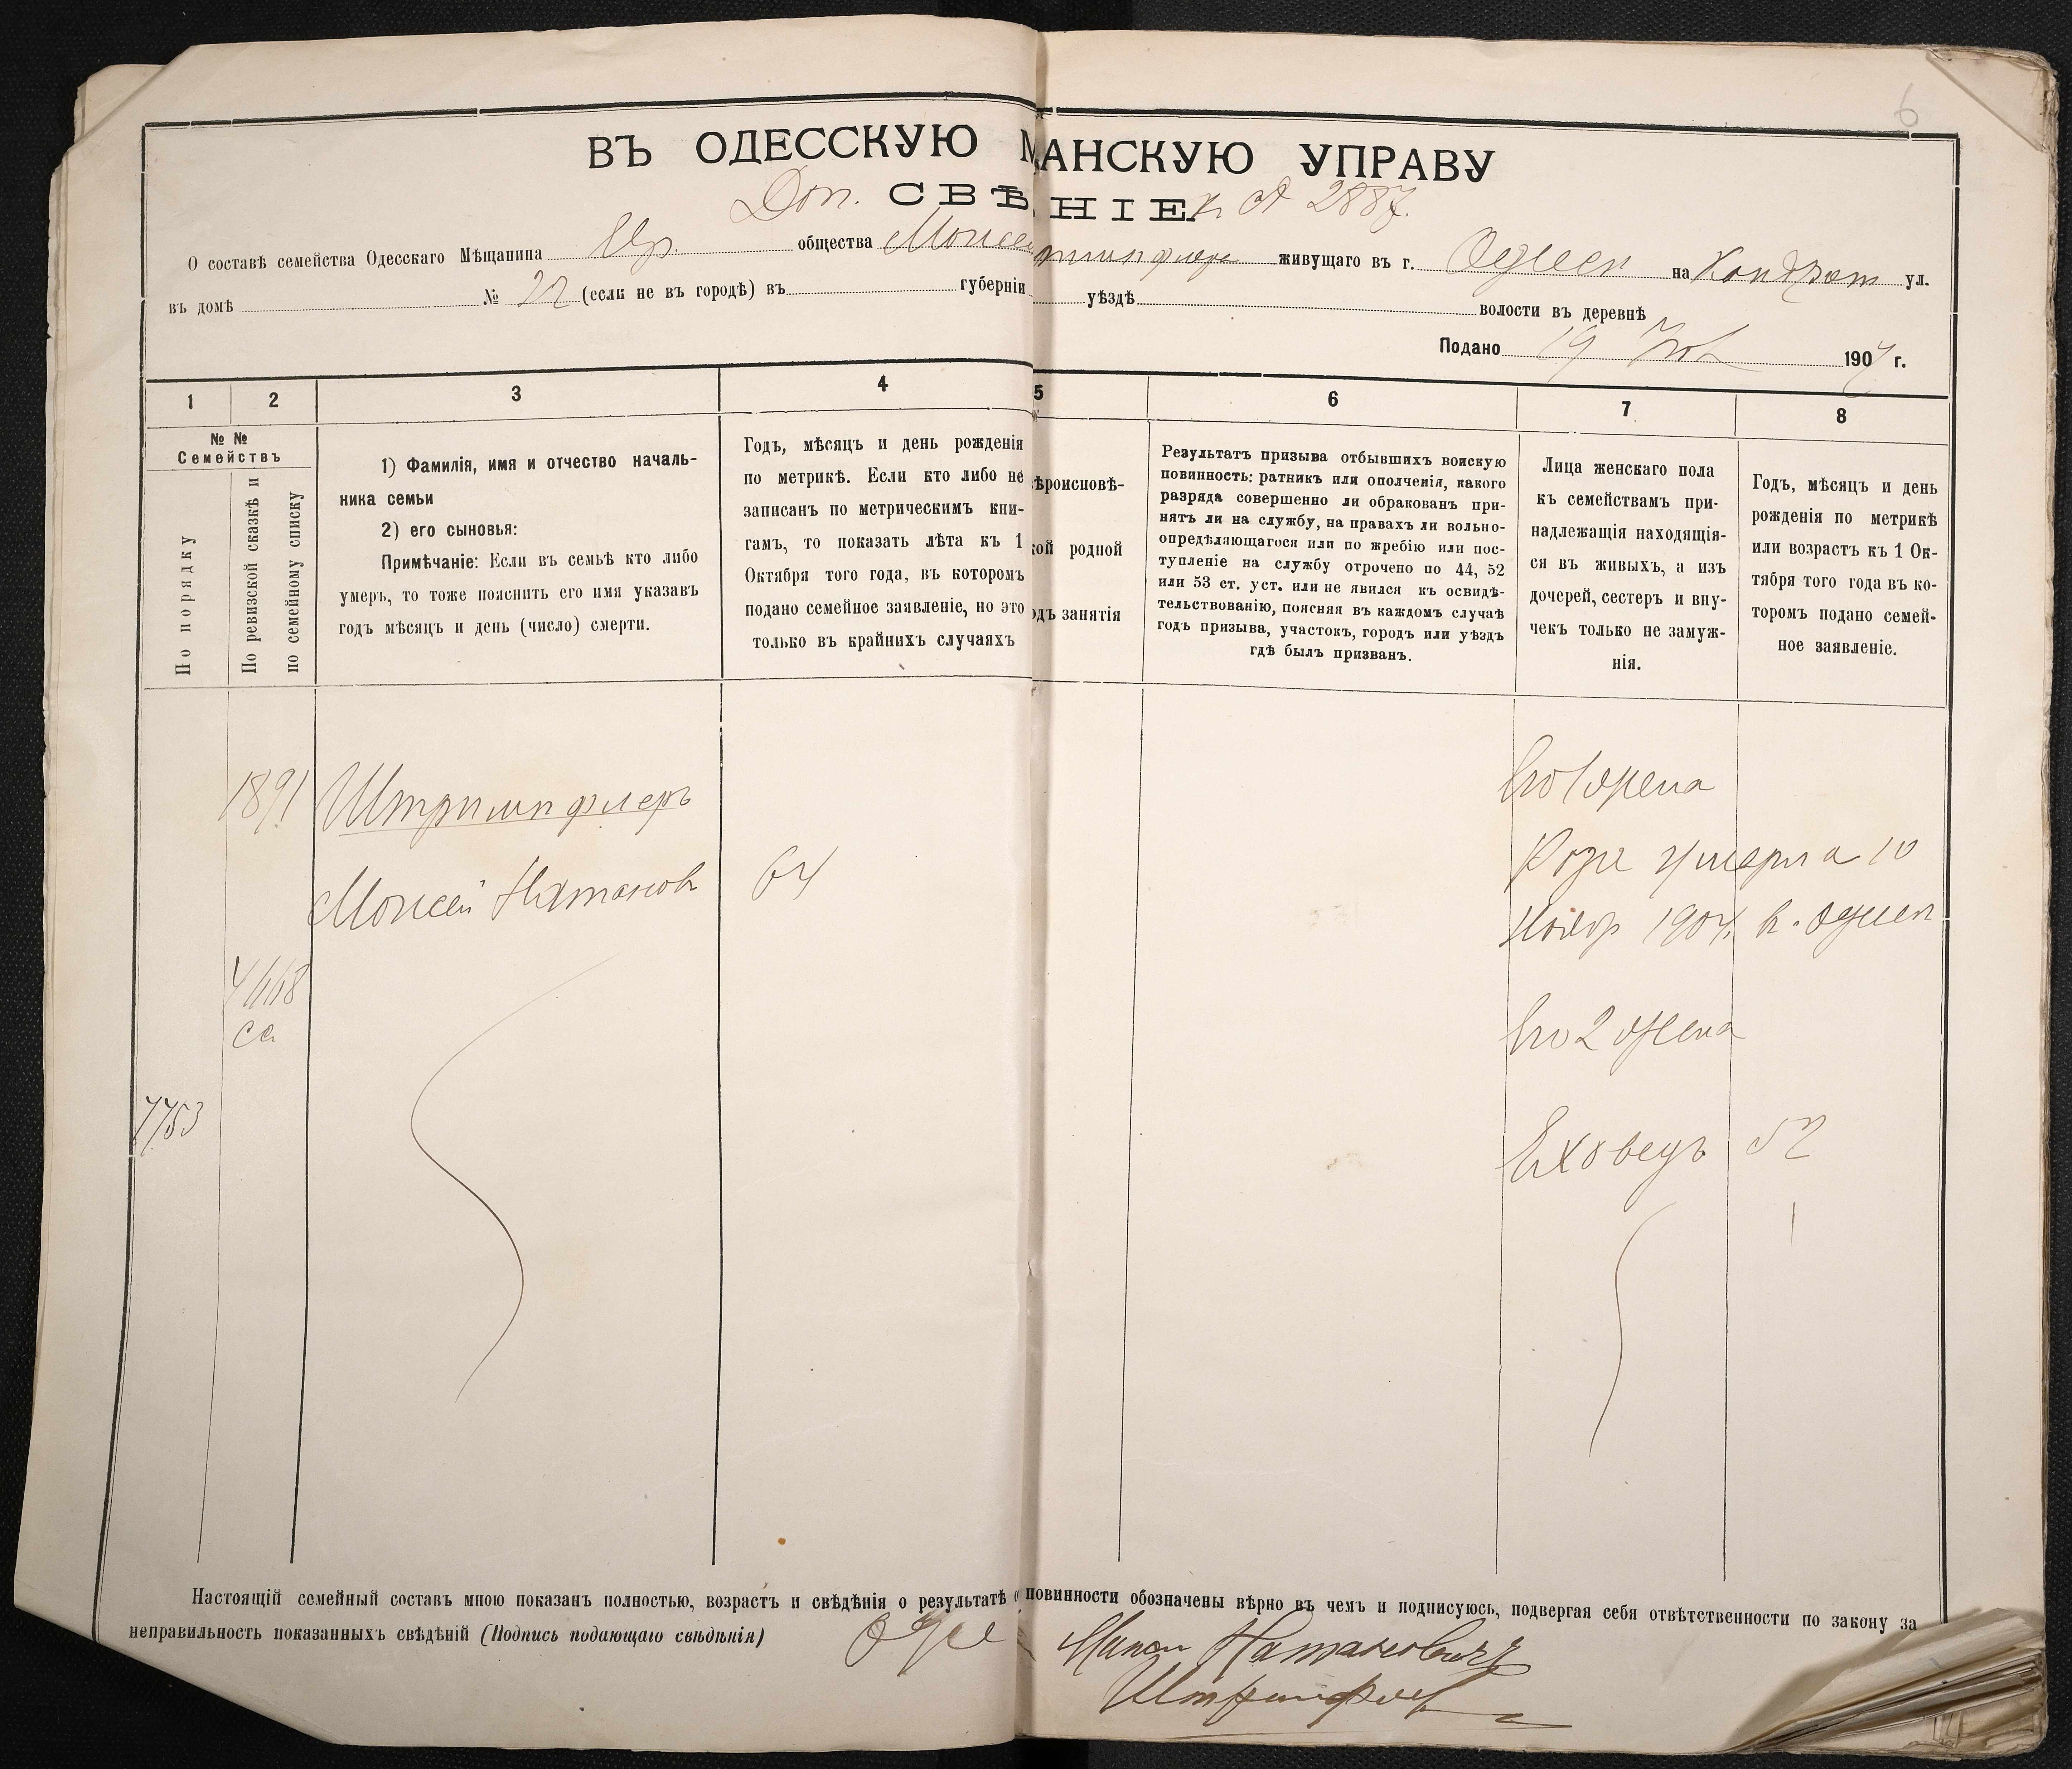 6
ВЪ ОДЕССКУЮ М АНСКУЮ УПРАВУ
Доп. СВѢ НІЕ к № 2887.
О составѣ семейства Одесскаго Мѣщанина Евр. общества Моисея живущаго въ г. Одессе на ул.
въ домѣ № 22 (если не въ городѣ) въ губерніи уѣздѣ волости въ деревнѣ
Подано 19 190 г.
1 2 3 4 5 6 7 8
№ №
Семействъ
По порядку
По ревизской сказкѣ и
по семейному списку
1) Фамилія, имя и отчество началь-
ника семьи
2) его сыновья:
Примѣчаніе: Если въ семьѣ кто либо
умеръ, то тоже пояснить его имя указавъ
годъ мѣсяцъ и день (число) смерти.
Годъ, мѣсяцъ и день рожденія
по метрикѣ. Если кто либо не
записанъ по метрическимъ кни-
гамъ, то показать лѣта къ 1
Октября того года, въ которомъ
подано семейное заявленіе, но это
только въ крайнихъ случаяхъ
ѣроисповѣ-
кой родной
одъ занятія
Результатъ призыва отбывшихъ воискую
повинность: ратникъ или ополченія, какого
разряда совершенно ли обракованъ при-
нятъ ли на службу, на правахъ ли вольно-
опредѣляющагося или по жребію или пос-
тупленіе на службу отрочено по 44, 52
или 53 ст. уст. или не явился къ освидѣ-
тельствованію, поясняя въ каждомъ случаѣ
годъ призыва, участокъ, городъ или уѣздъ
гдѣ былъ призванъ.
Лица женскаго пола
къ семействамъ при-
надлежащія находящія-
ся въ живыхъ, а изъ
дочерей, сестеръ и вну-
чекъ только не замуж-
нія.
Годъ, мѣсяцъ и день
рожденія по метрикѣ
или возрастъ къ 1 Ок-
тября того года въ ко-
торомъ подано семей-
ное заявленіе.
1891 Штримпфлеръ
Моисей Натановъ 64
Его 1 жена
Роза умерла 10
Ноябр 1904. в. Одессе
Его 2 жена
7753
Еховедъ 52
Настоящій семейный составъ мною показанъ полностью, возрастъ и свѣдѣнія о результатѣ о повинности обозначены вѣрно въ чемъ и подписуюсь, подвергая себя отвѣтственности по закону за
неправильность показанныхъ свѣдѣній (Подпись подающаго свѣдѣнія)
Натановичъ